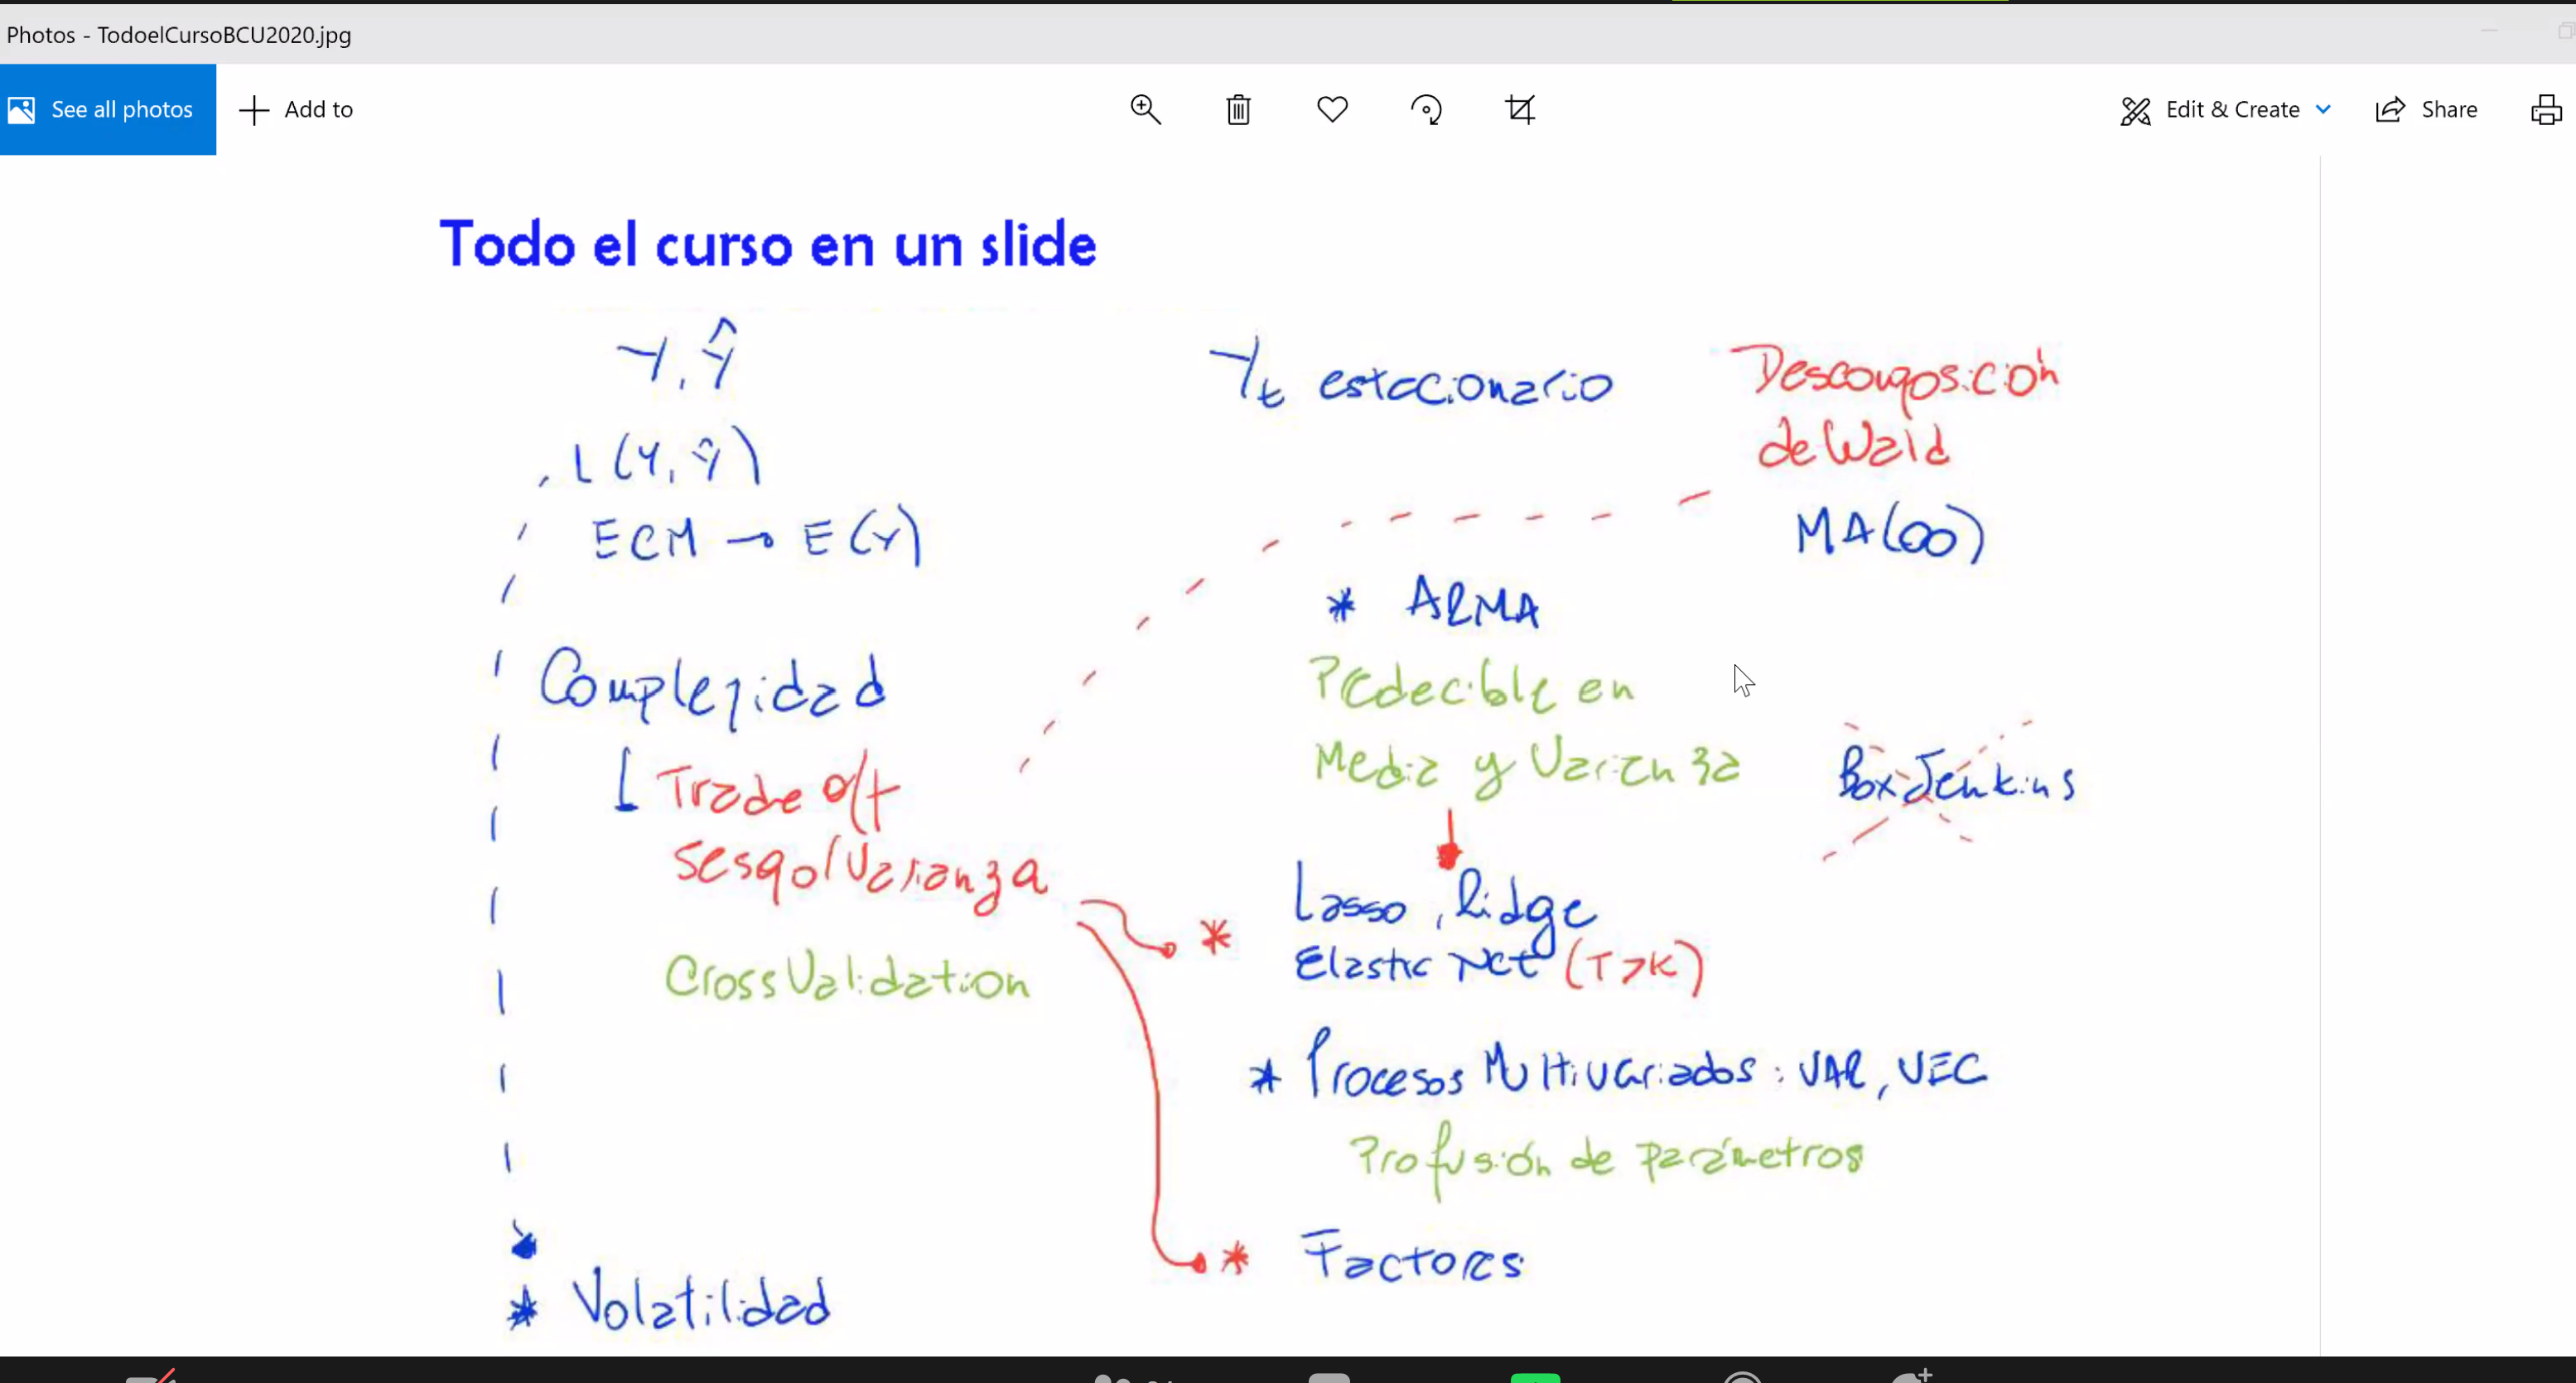 Photos - TodoelCursoBCU2020.jpg
See all photos
Add to
Edit & Create
Share
Todo el curso en un slide
Y, Ŷ
L (Y, Ŷ)
ECM → E(Y)
Complejidad
Trade off
Sesgo/Varianza
Cross Validation
* Volatilidad
Yt estacionario
Descomposición
de Wald
MA(∞)
* ARMA
Predecible en
Media y Varianza
Box Jenkins
* Lasso, Ridge
Elastic Net (T>K)
* Procesos Multivariados: VAR, VEC
Profusión de parámetros
* Factores